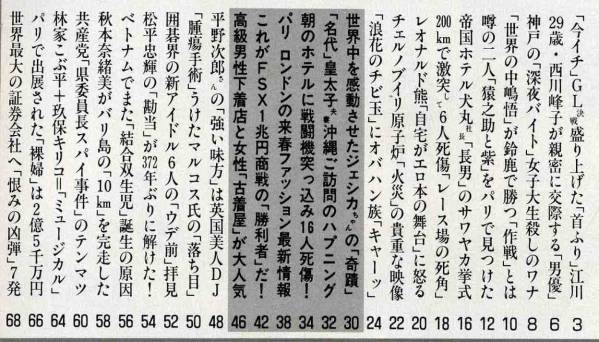 「今イチ」GL決戦盛り上げた「首ふり」江川 3
29歳・西川峰子が親密に交際する「男優」 6
神戸の「深夜バイト」女子大生殺しのワナ 8
「世界の中嶋悟」が鈴鹿で勝つ「作戦」とは 10
噂の二人「猿之助と紫」をパリで見つけた 12
帝国ホテル犬丸社長「長男」のサワヤカ挙式 16
200kmで激突して6人死傷「レース場の死角」 18
レオナルド熊「自宅がエロ本の舞台」に怒る 20
チェルノブイリ原子炉「火災」の貴重な映像 22
「浪花のチビ玉」にオバハン族「キャーッ」 24
世界中を感動させたジェシカちゃんの「奇蹟」 30
「名代」皇太子夫妻沖縄ご訪問のハプニング 32
朝のホテルに戦闘機突っ込み16人死傷! 34
パリ ロンドンの来春ファッション最新情報 38
これがFSX1兆円商戦の「勝利者」だ! 42
高級男性下着店と女性「古着屋」が大人気 46
平野次郎さんの「強い味方」は英国美人DJ 48
「腫瘍手術」うけたマルコス氏の「落ち目」 50
囲碁界の新アイドル6人の「ウデ前」拝見 52
松平忠輝の「勘当」が372年ぶりに解けた! 54
ベトナムでまた「結合双生児」誕生の原因 56
秋本奈緒美がバリ島の「10km」を完走した 58
共産党「県委員長スパイ事件」のテンマツ 60
林家こぶ平+玖保キリコ=「ミュージカル」 64
パリで出展された「裸婦」は2億5千万円 66
世界最大の証券会社へ「恨みの凶弾」7発 68